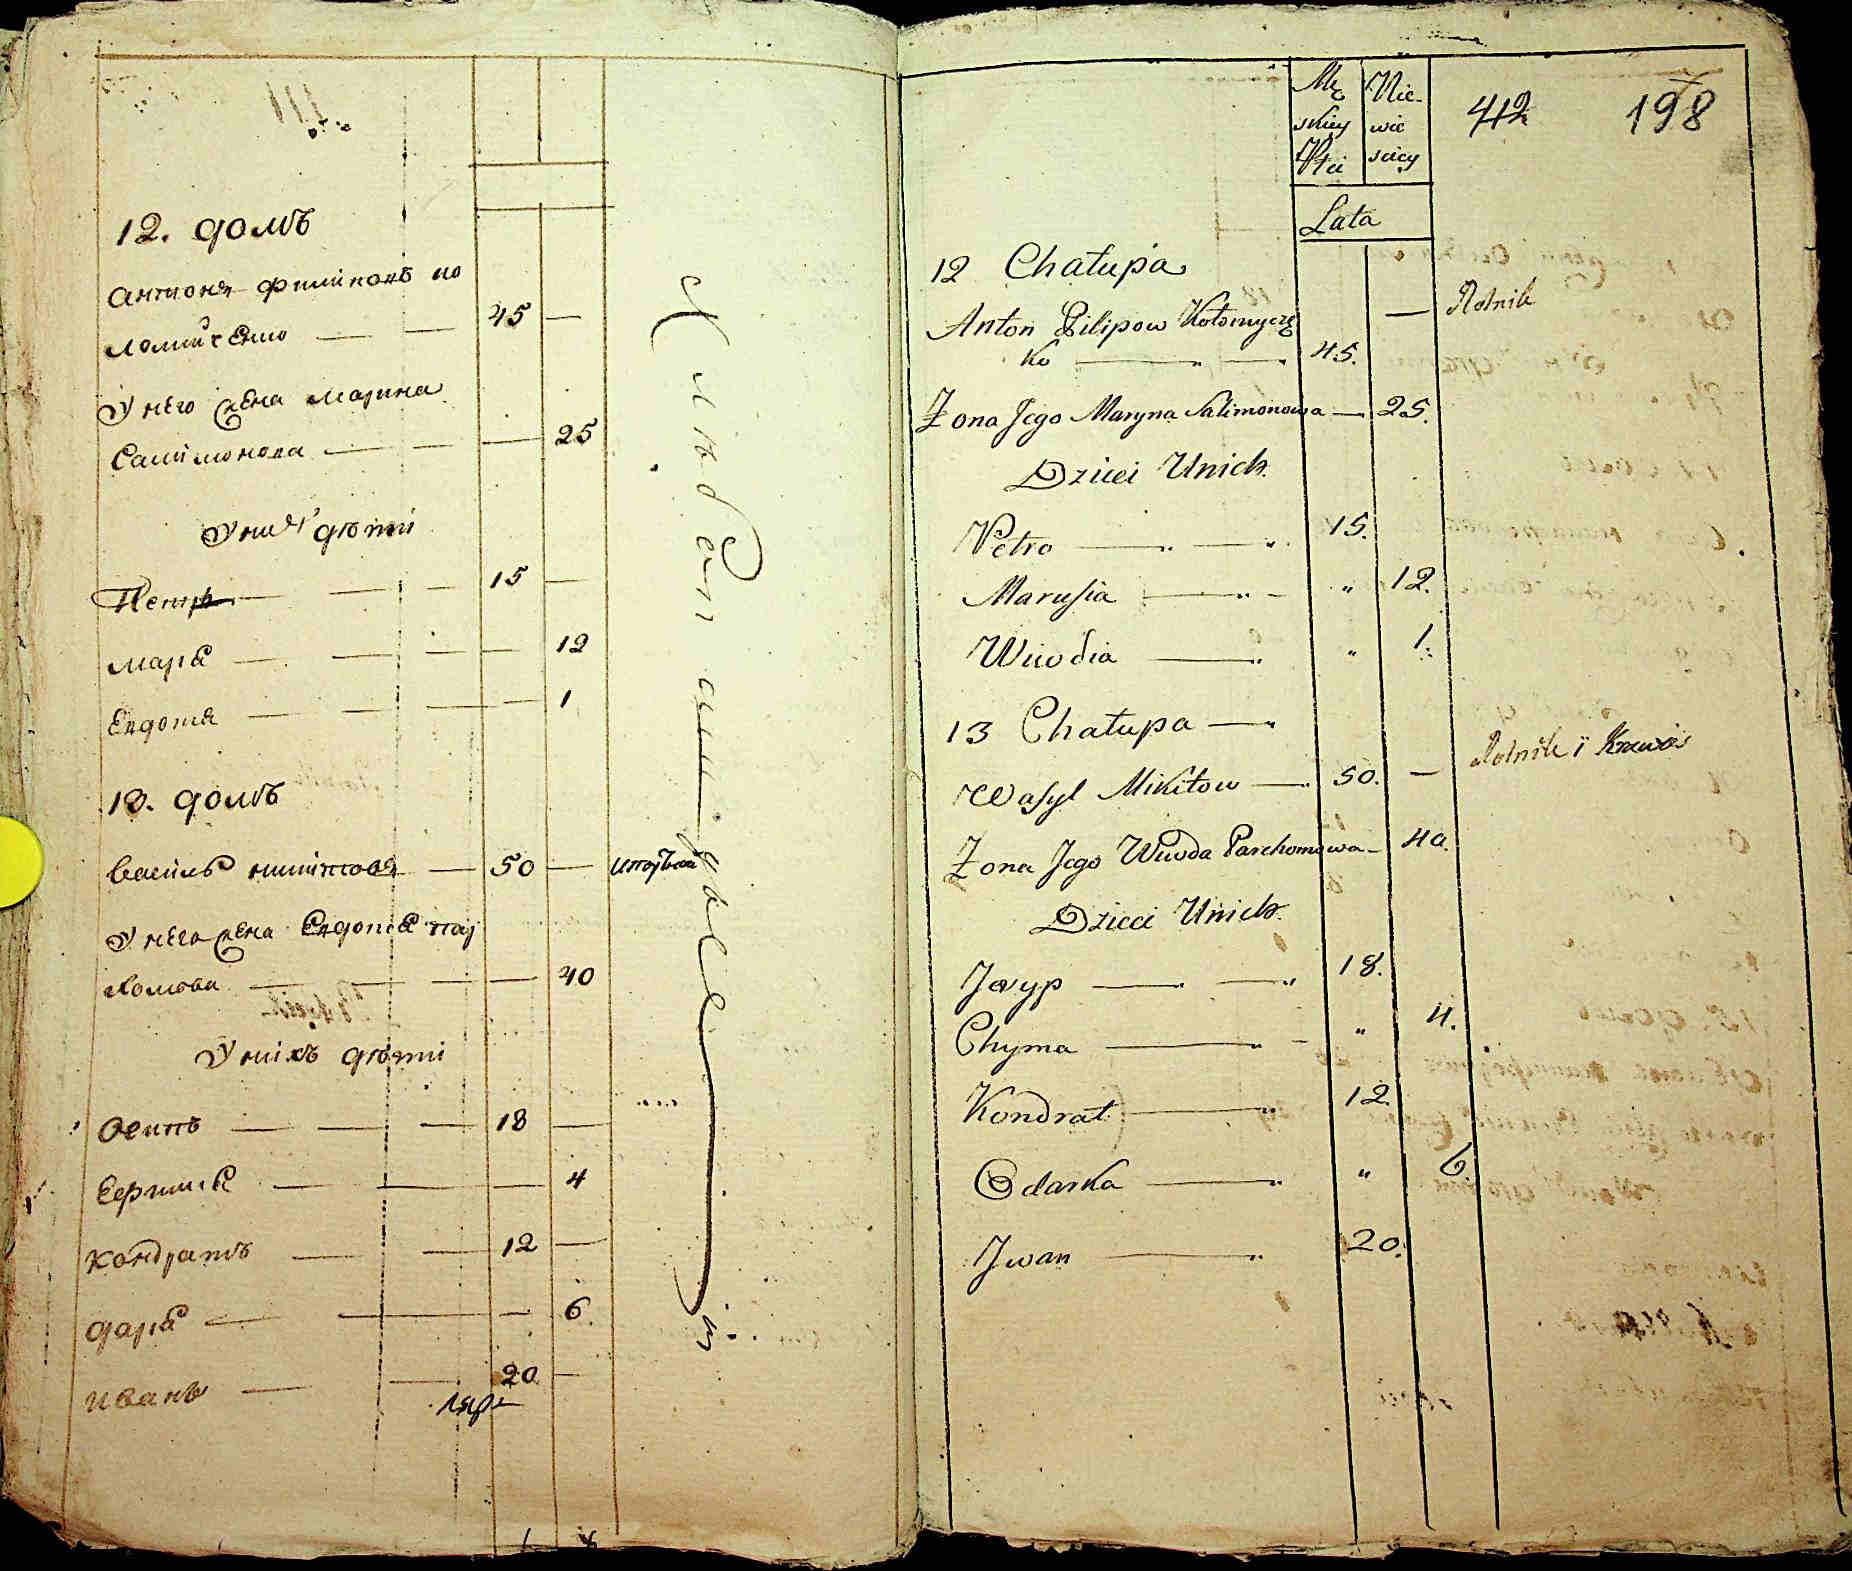 12. домъ
Антонъ Филиповъ Ко
ломиченко — — 45 —
У него жена Марина
Салимонова — — — 25
У них дѣти
Петръ — — — 15 —
Марья — — — — 12
Евдотья — — — — 1
13. домъ
Василь Никитовъ — 50 —
У него жена Евдотья Пар
хомова — — — — 40
У нихъ дѣти
Осипъ — — — 18 —
Евфимья — — — 4
Кондратъ — — 12 —
Дарья — — — 6
Иванъ — — 20 —
Хлѣбопашцы
Mę
skiey
Płci
Nie-
wie
sciey
Lata
412 198
12 Chałupa
Anton Pilipow Kołomycze — Rolnik
ko — — 45.
Żona Jego Maryna Salimonowa — 25.
Dzieci Unich
Petro — — 15.
Marusia — — " 12.
Wiwdia — " 1.
13 Chałupa —
Wasyl Mikitow — 50. — Rolnik i Krawiec
Żona Jego Wiwda Parchomowa — 40.
Dzieci Unich
Jozyp — — 18.
Chyma — — " 4.
Kondrat — 12.
Odarka — " 6
Jwan — 20.